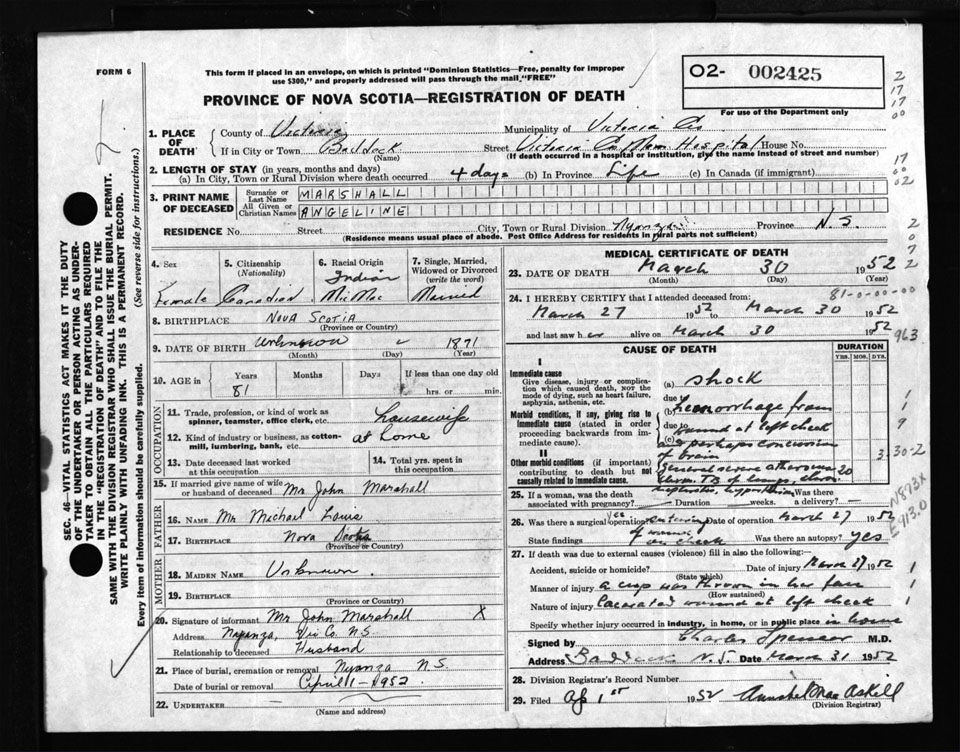 FORM 6
This form if placed in an envelope, on which is printed "Dominion Statistics—Free, penalty for improper
use $300," and properly addressed will pass through the mail "FREE"
PROVINCE OF NOVA SCOTIA—REGISTRATION OF DEATH
O2- 002425
For use of the Department only
2
17
17
00
17
00
02
2
0
7
2
2
SEC. 46—VITAL STATISTICS ACT MAKES IT THE DUTY
OF THE UNDERTAKER OR PERSON ACTING AS UNDER-
TAKER TO OBTAIN ALL THE PARTICULARS REQUIRED
IN THE "REGISTRATION OF DEATH" AND TO FILE THE
SAME WITH THE DIVISION REGISTRAR WHO SHALL ISSUE THE BURIAL PERMIT.
WRITE PLAINLY WITH UNFADING INK. THIS IS A PERMANENT RECORD.
Every item of information should be carefully supplied. (See reverse side for instructions.)
1. PLACE OF DEATH
County of Victoria
Municipality of Victoria Co
If in City or Town Baddeck
(Name)
Street Victoria Co Mem Hospital House No.
(If death occurred in a hospital or institution, give the name instead of street and number)
2. LENGTH OF STAY (in years, months and days)
(a) In City, Town or Rural Division where death occurred 4 days (b) In Province Life (c) In Canada (if immigrant)
3. PRINT NAME OF DECEASED
Surname or Last Name MARSHALL
All Given or Christian Names ANGELINE
RESIDENCE No. Street City, Town or Rural Division Nyanza Province N.S.
(Residence means usual place of abode. Post Office Address for residents in rural parts not sufficient)
4. Sex
Female
5. Citizenship
(Nationality)
Canadian
6. Racial Origin
Indian
MicMac
7. Single, Married,
Widowed or Divorced
(write the word)
Married
8. BIRTHPLACE NOVA SCOTIA
(Province or Country)
9. DATE OF BIRTH unknown 1871
(Month) (Day) (Year)
10. AGE in
Years Months Days If less than one day old
81 hrs. or min.
OCCUPATION
11. Trade, profession, or kind of work as
spinner, teamster, office clerk, etc. housewife
12. Kind of industry or business, as cotton-
mill, lumbering, bank, etc. at home
13. Date deceased last worked
at this occupation
14. Total yrs. spent in
this occupation
15. If married give name of wife
or husband of deceased Mr John Marshall
FATHER
16. NAME Mr Michael Louis
17. BIRTHPLACE Nova Scotia
(Province or Country)
MOTHER
18. MAIDEN NAME Unknown.
19. BIRTHPLACE
(Province or Country)
20. Signature of informant Mr John Marshall X
Address Nyanza, Vic Co. N.S.
Relationship to deceased Husband
21. Place of burial, cremation or removal Nyanza N.S.
Date of burial or removal April 1-1952
22. UNDERTAKER
(Name and address)
MEDICAL CERTIFICATE OF DEATH
23. DATE OF DEATH March 30 1952
(Month) (Day) (Year)
81-0-00-00
24. I HEREBY CERTIFY that I attended deceased from:
March 27 1952 to March 30 1952
and last saw her alive on March 30 1952
963
CAUSE OF DEATH
DURATION
YRS. MOS. DYS.
I
Immediate cause
Give disease, injury or complica-
tion which caused death, NOT the
mode of dying, such as heart failure,
asphyxia, asthenia, etc.
Morbid conditions, if any, giving rise to
immediate cause (stated in order
proceeding backwards from im-
mediate cause).
II
Other morbid conditions (if important)
contributing to death but not
causally related to immediate cause.
(a) shock
due to
(b) hemorrhage from
due to wound at left cheek
(c) & perhaps concussion
of brain
general severe atheroma 20
chron. TB of lungs, chron.
nephritis,
1
1
?
3.30-2
N873X
E913.0
25. If a woman, was the death
associated with pregnancy? — Duration weeks. Was there a delivery?
26. Was there a surgical operation yes suturing Date of operation March 27 1952
State findings of wound on cheek Was there an autopsy? yes
27. If death was due to external causes (violence) fill in also the following:—
Accident, suicide or homicide? Date of injury March 27 1952
(State which)
Manner of injury a cup was thrown in her face
(How sustained)
Nature of injury lacerated wound at left cheek
Specify whether injury occurred in industry, in home, or in public place in home
1
1
1
Signed by Charles Spencer M.D.
Address Baddeck N.S. Date March 31 1952
28. Division Registrar's Record Number
29. Filed Ap 1st 1952 Annabel MacAskill
(Division Registrar)